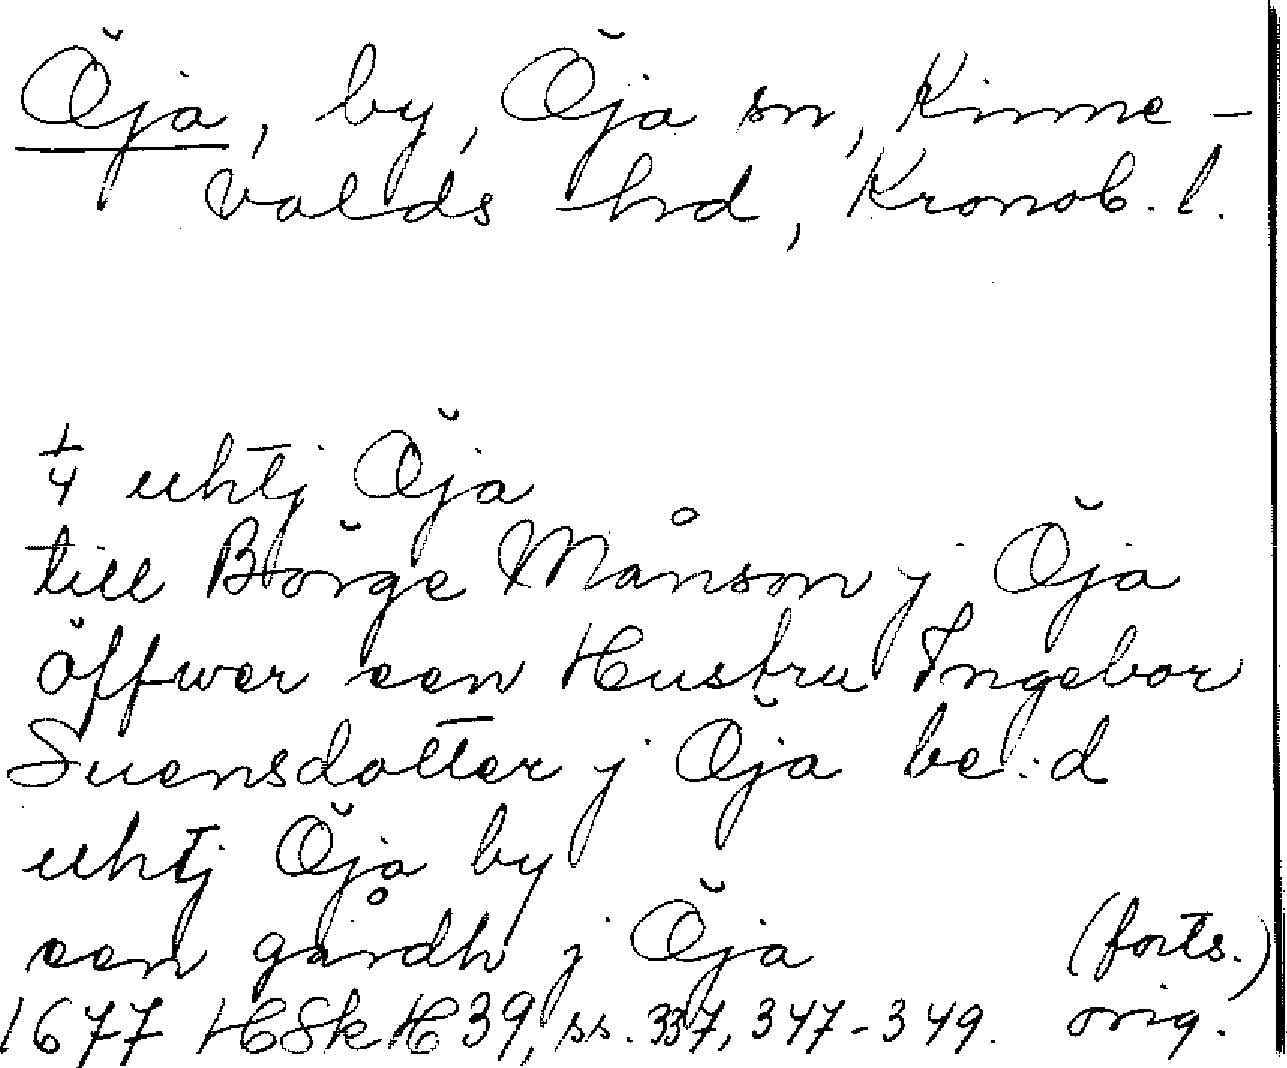 Öja, by, Öja sn, Kinne-
valds hrd, Kronob. l.
1/4 uhtj Öja
till Börge Månson j Öja
öffwer een Hustru Ingebor
Suensdotter j Öja be:d
uhtj Öja by
een gårdh j Öja (forts.)
1677 HSkH 39, ss. 337, 347-349. orig.